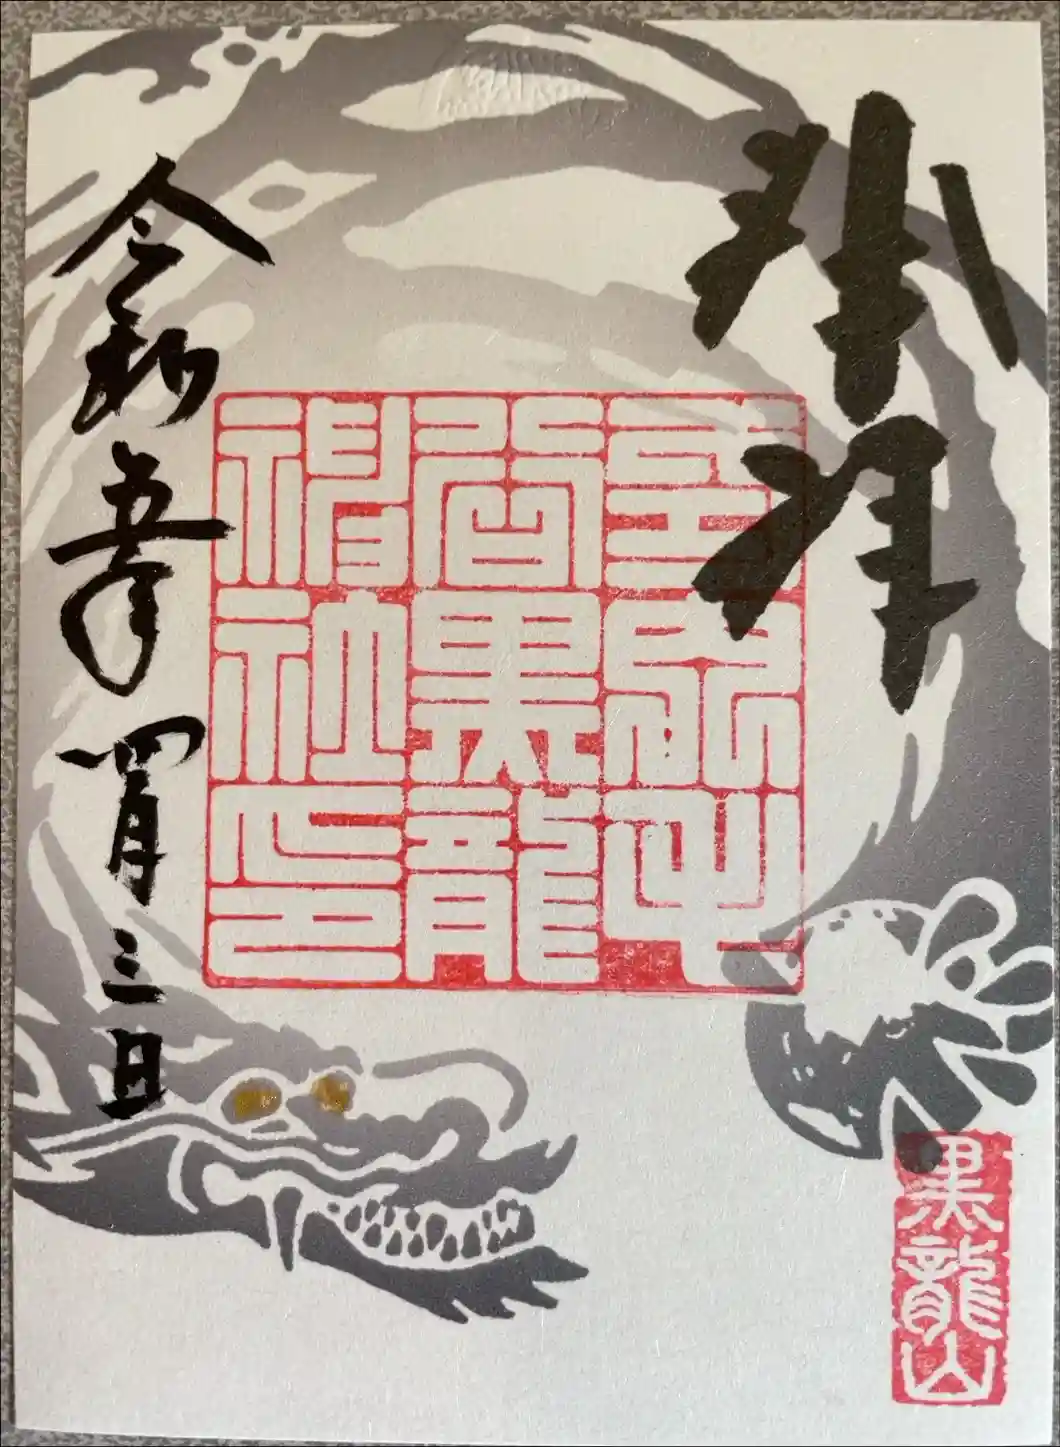 奉拝
毛
谷黒龍
神社印
令和五年四月三日
黒龍山